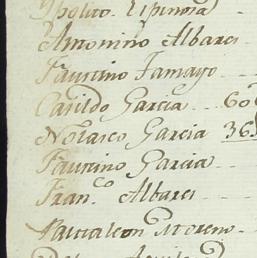 Ypolito Espinosa
Antonino Albares
Faustino Tamayo
Casildo Garcia 60
Nolasco Garcia 36
Faustino Garcia
Fran.co Albares
Pantaleon Moreno